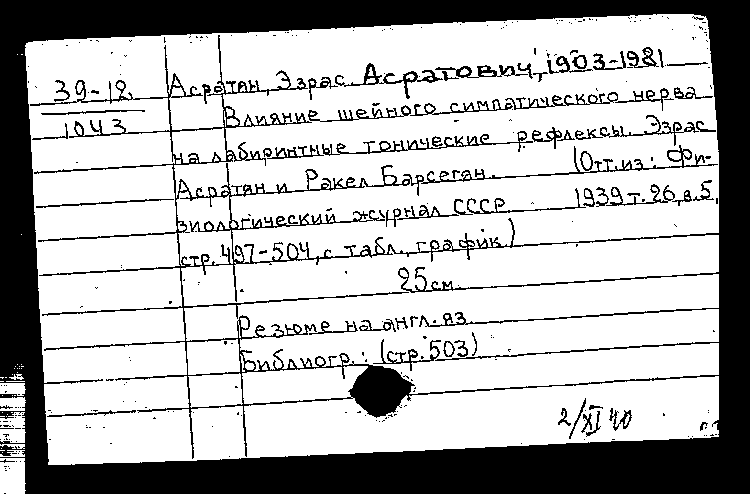 39-12
1043
Асратян, Эзрас Асратович, 1903-1981
Влияние шейного симпатического нерва
на лабиринтные тонические рефлексы. Эзрас
Асратян и Ракел Барсегян. (Отт.из: Фи-
зиологический журнал СССР 1939 т. 26, в. 5,
стр. 497-504, с табл., график.)
25 см.
Резюме на англ. яз.
Библиогр.: (стр. 503)
2/XI 40